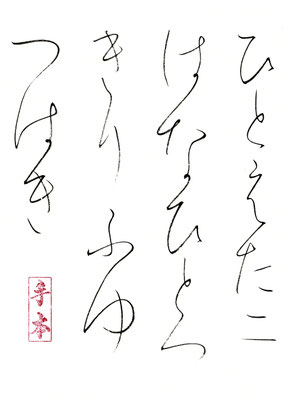 ひとえたに
はなひとつ
きり ふゆ
つはき
手本